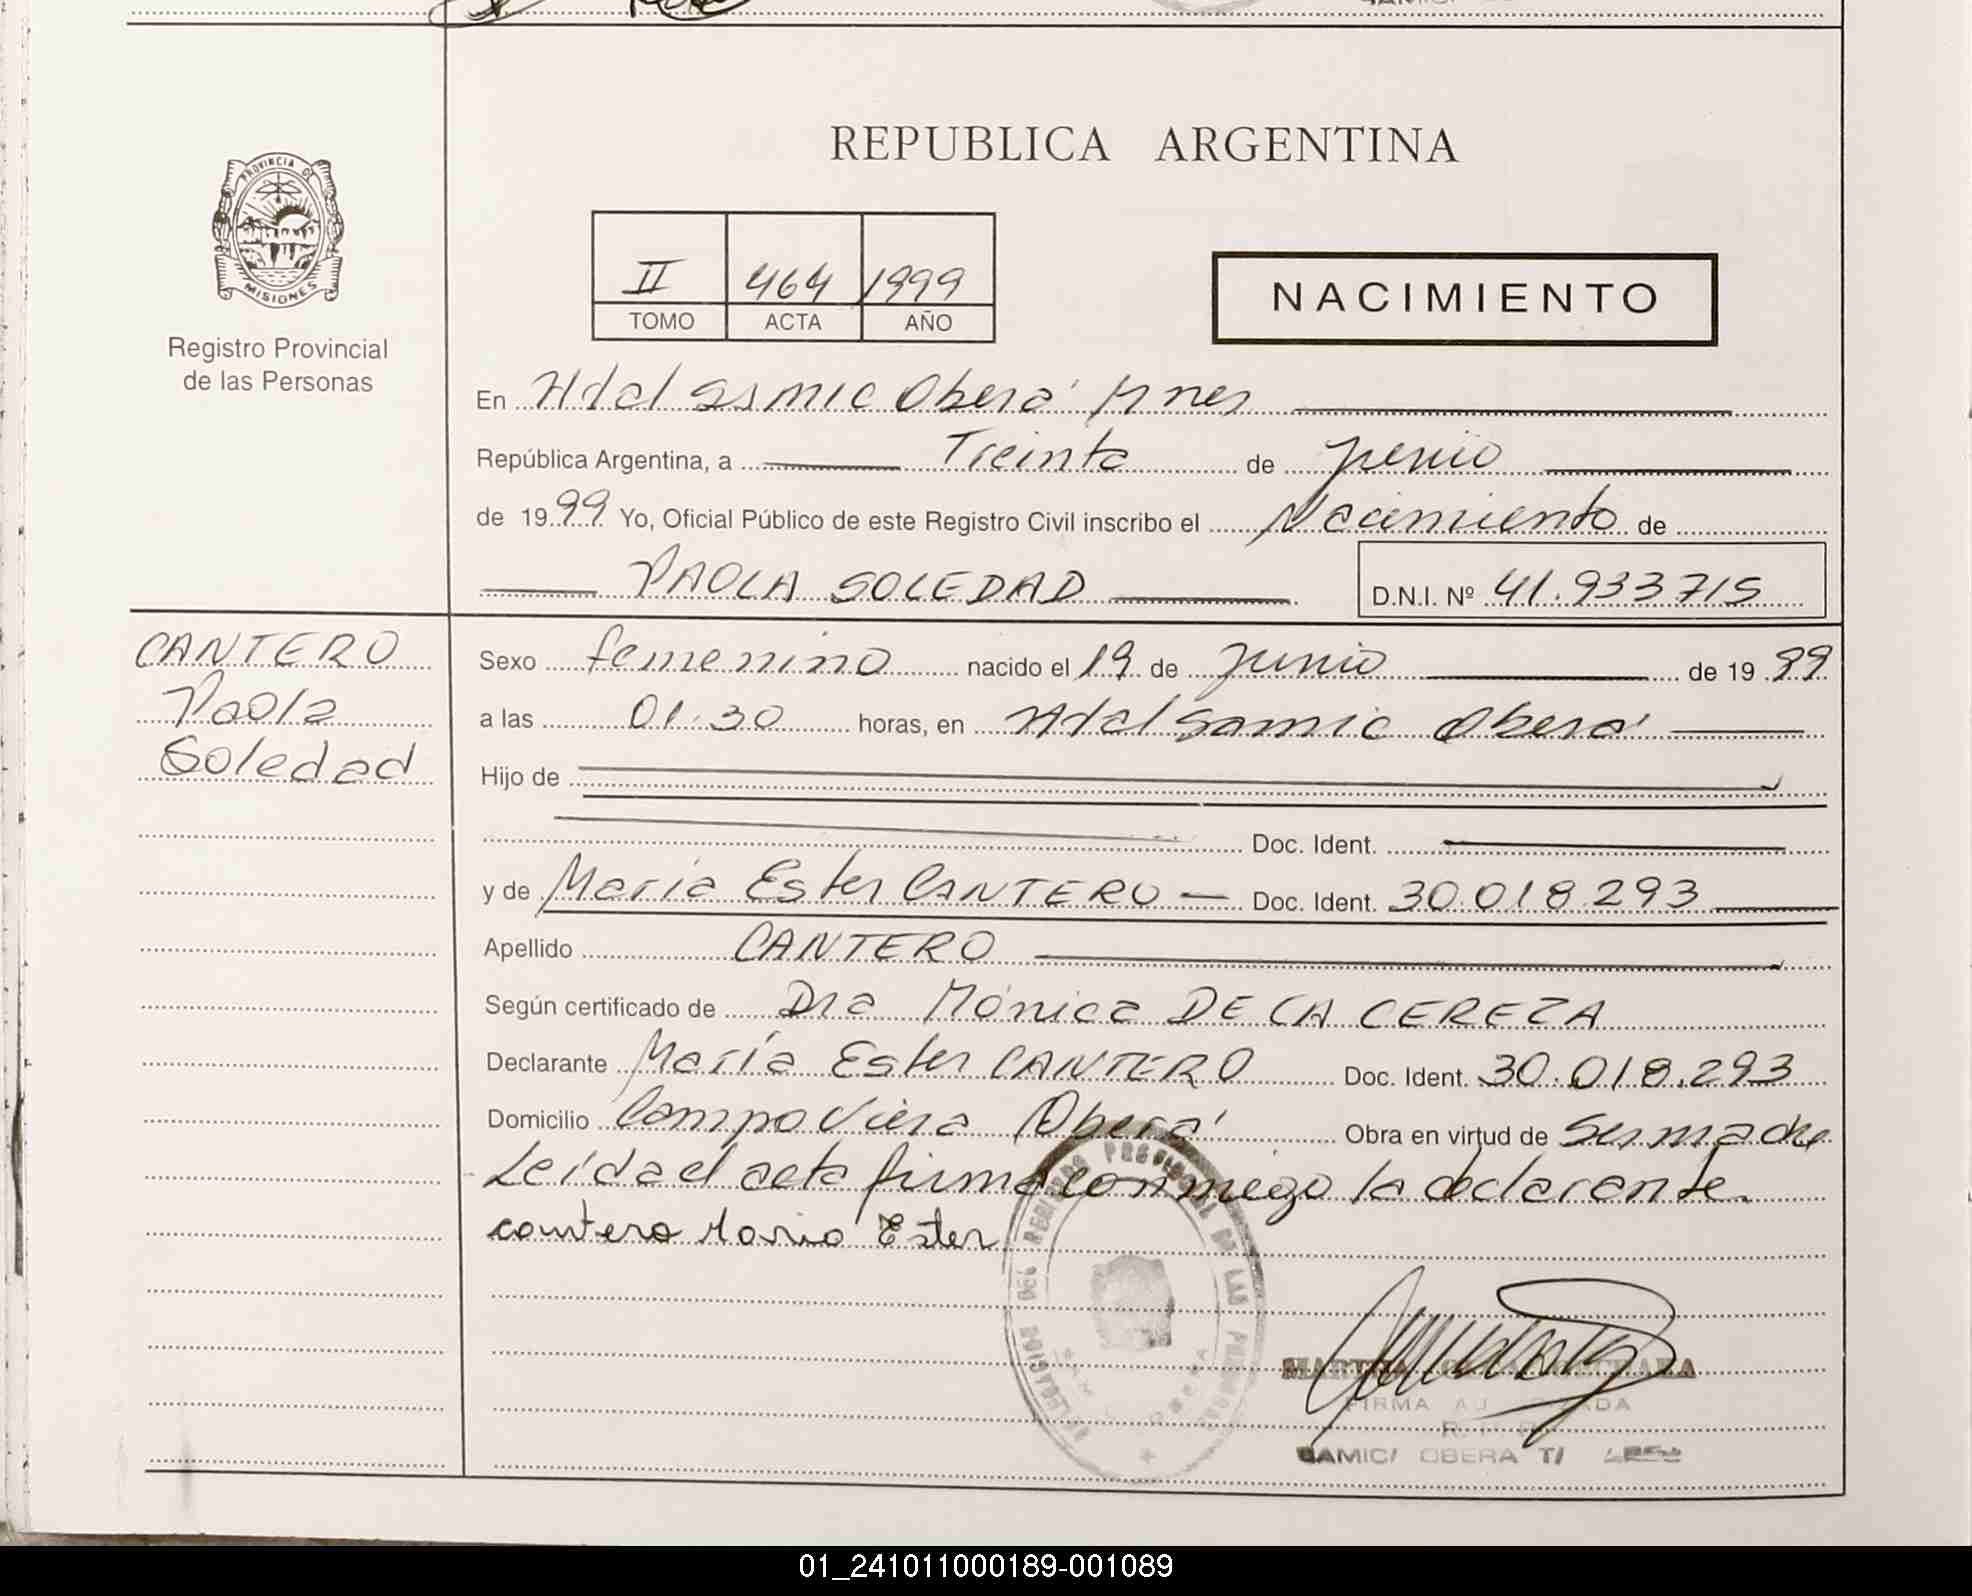 REPUBLICA ARGENTINA
PROVINCIA DE
MISIONES
Registro Provincial
de las Personas
II 464 1999
TOMO ACTA AÑO
NACIMIENTO
En Htal samic Oberá Mnes
República Argentina, a Treinta de junio
de 1999 Yo, Oficial Público de este Registro Civil inscribo el Nacimiento de
PAOLA SOLEDAD D.N.I. Nº 41.933715
CANTERO
Paola
Soledad
Sexo femenino nacido el 19 de junio de 1999
a las 01.30 horas, en Htal Samic Oberá
Hijo de
Doc. Ident.
y de María Ester CANTERO Doc. Ident. 30.018.293
Apellido CANTERO
Según certificado de Dra Mónica DE LA CEREZA
Declarante María Ester CANTERO Doc. Ident. 30.018.293
Domicilio Campo Viera Oberá Obra en virtud de ser madre
Leída el acta firma conmigo la declarante.
cantero Maria Ester
DEL REGISTRO PROVINCIAL DE LAS PERSONAS
OBERA
MARTHA
FIRMA
SAMIC/ OBERA
01_241011000189-001089